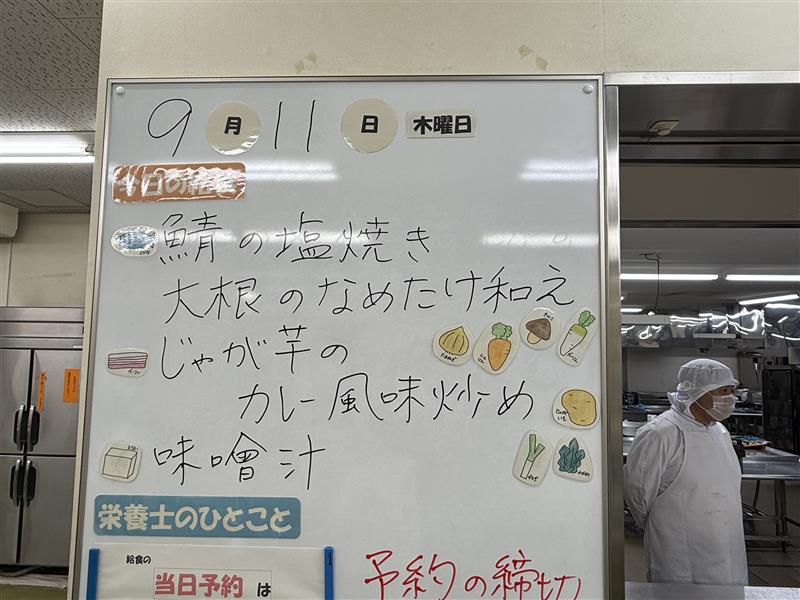 9月11日 木曜日
今日の給食
鯖の塩焼き
大根のなめたけ和え
じゃが芋の
カレー風味炒め
味噌汁
栄養士のひとこと
給食の
当日予約は
予約の締切